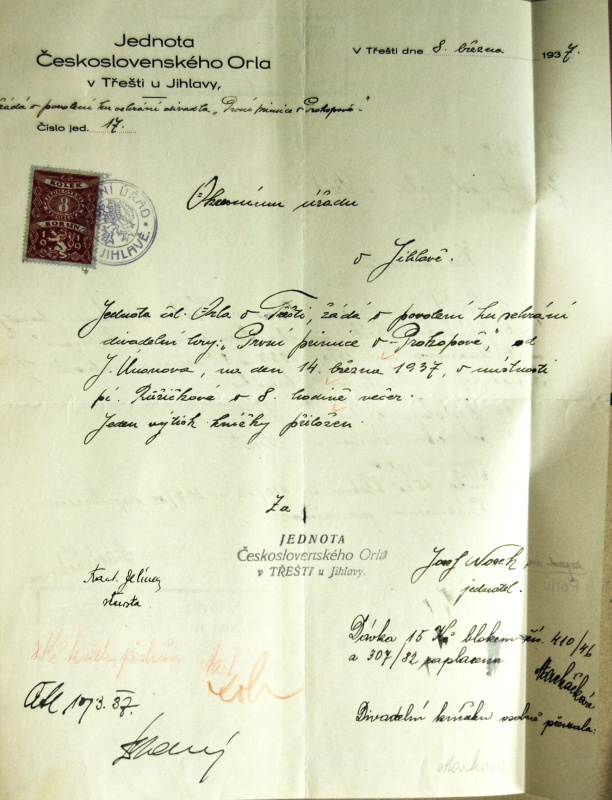 Jednota
Československého Orla
v Třešti u Jihlavy,
V Třešti dne 8. března 1937.
žádá o povolení ku sehrání divadla „První primice v Prokopově.“
Číslo jed. 17.
KOLEK
8
KORUN
1919
ÚŘAD
JIHLAVĚ
Okresnímu úřadu
v Jihlavě.
Jednota čsl. Orla v Třešti, žádá o povolení ku sehrání
divadelní hry: „První primice v Prokopově“, od
J. na den 14. března 1937, v místnosti
pí. Růžičkové v 8. hodině večer.
Jeden výtisk knížky přiložen.
Za
JEDNOTA
Československého Orla
v TŘEŠTI u Jihlavy.
Josef Nosek,
jednatel.
Frant. Jelínek
starosta.
Dávka 15 Kč blokem čís. 410/46
a 307/82 zaplacena.
8 Kč
10/3. 37.
Divadelní knížku osobně převzala: